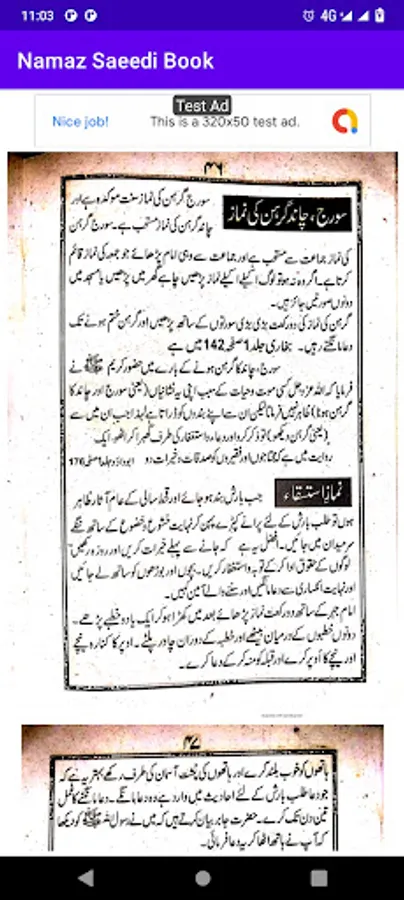 11:03
4G
Namaz Saeedi Book
Test Ad
Nice job!
This is a 320x50 test ad.
۴۶
سورج، چاند گرہن کی نماز
سورج گرہن کی نماز سنت موکدہ ہے اور
چاند گرہن کی نماز مستحب ہے۔ سورج گرہن
کی نماز جماعت سے مستحب ہے اور جماعت سے وہی امام پڑھائے جو جمعہ کی نماز قائم
کرتا ہے۔ اگر وہ نہ ہو تو لوگ اکیلے اکیلے نماز پڑھیں چاہے گھر میں پڑھیں یا مسجد میں
دونوں صورتیں جائز ہیں۔
گرہن کی نماز کی دو رکعت بڑی بڑی سورتوں کے ساتھ پڑھیں اور گرہن ختم ہونے تک
دعا مانگتے رہیں۔ بخاری جلد 1 صفحہ 142 میں ہے
سورج، چاند کا گرہن ہونے کے بارے میں حضور کریم ﷺ نے
فرمایا کہ اللہ عزوجل کسی موت وحیات کے سبب اپنی یہ نشانیاں (یعنی سورج اور چاند کا
گرہن ہونا) ظاہر نہیں فرماتا لیکن ان سے اپنے بندوں کو ڈراتا ہے لہذا جب ان میں سے
(یعنی گرہن دیکھو) تو ذکر کرو اور دعا و استغفار کی طرف گھبرا کر اٹھو۔ ایک
روایت میں ہے کہ محتاجوں اور فقیروں کو صدقات و خیرات دو ابوداؤد جلد 1 صفحہ 176
نماز استسقاء
جب بارش بند ہو جائے اور قحط سالی کے عام آثار ظاہر
ہوں تو طلب بارش کے لئے پرانے کپڑے پہن کر نہایت خشوع و خضوع کے ساتھ ننگے
سر میدان میں جائیں۔ افضل یہ ہے کہ جانے سے پہلے خیرات کریں اور روزہ رکھیں
لوگوں کے حقوق ادا کر کے توبہ و استغفار کریں۔ بچوں اور بوڑھوں کو ساتھ لے جائیں
اور نہایت انکساری سے دعا مانگیں اور سننے والے آمین کہیں۔
امام جہر کے ساتھ دو رکعت نماز پڑھائے بعد میں کھڑا ہو کر ایک یا دو خطبے پڑھے۔
دونوں خطبوں کے درمیان بیٹھے اور خطبہ کے دوران چادر پلٹے۔ اوپر کا کنارہ نیچے
اور نیچے کا اوپر کرے اور قبلہ کو منہ کر کے دعا کرے۔
۴۷
ہاتھوں کو خوب بلند کرے اور ہاتھوں کی پشت آسمان کی طرف رکھے بہتر یہ ہے کہ
جو دعا طلب بارش کے لئے احادیث میں وارد ہے وہ دعا مانگے۔ دعا مانگنے کا عمل
تین دن تک کرے۔ حضرت جابر بیان کرتے ہیں کہ میں نے رسول اللہ ﷺ کو دیکھا
کہ آپ نے ہاتھ اٹھا کر یہ دعا فرمائی۔